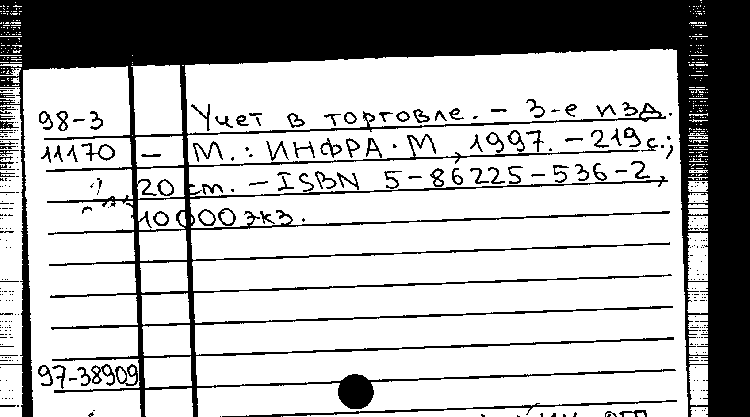 98-3 Учет в торговле. - 3-е изд.
11170 - М.: ИНФРА·М, 1997. - 219с.;
20 cm. - ISBN 5-86225-536-2,
10000 экз.
97-38909